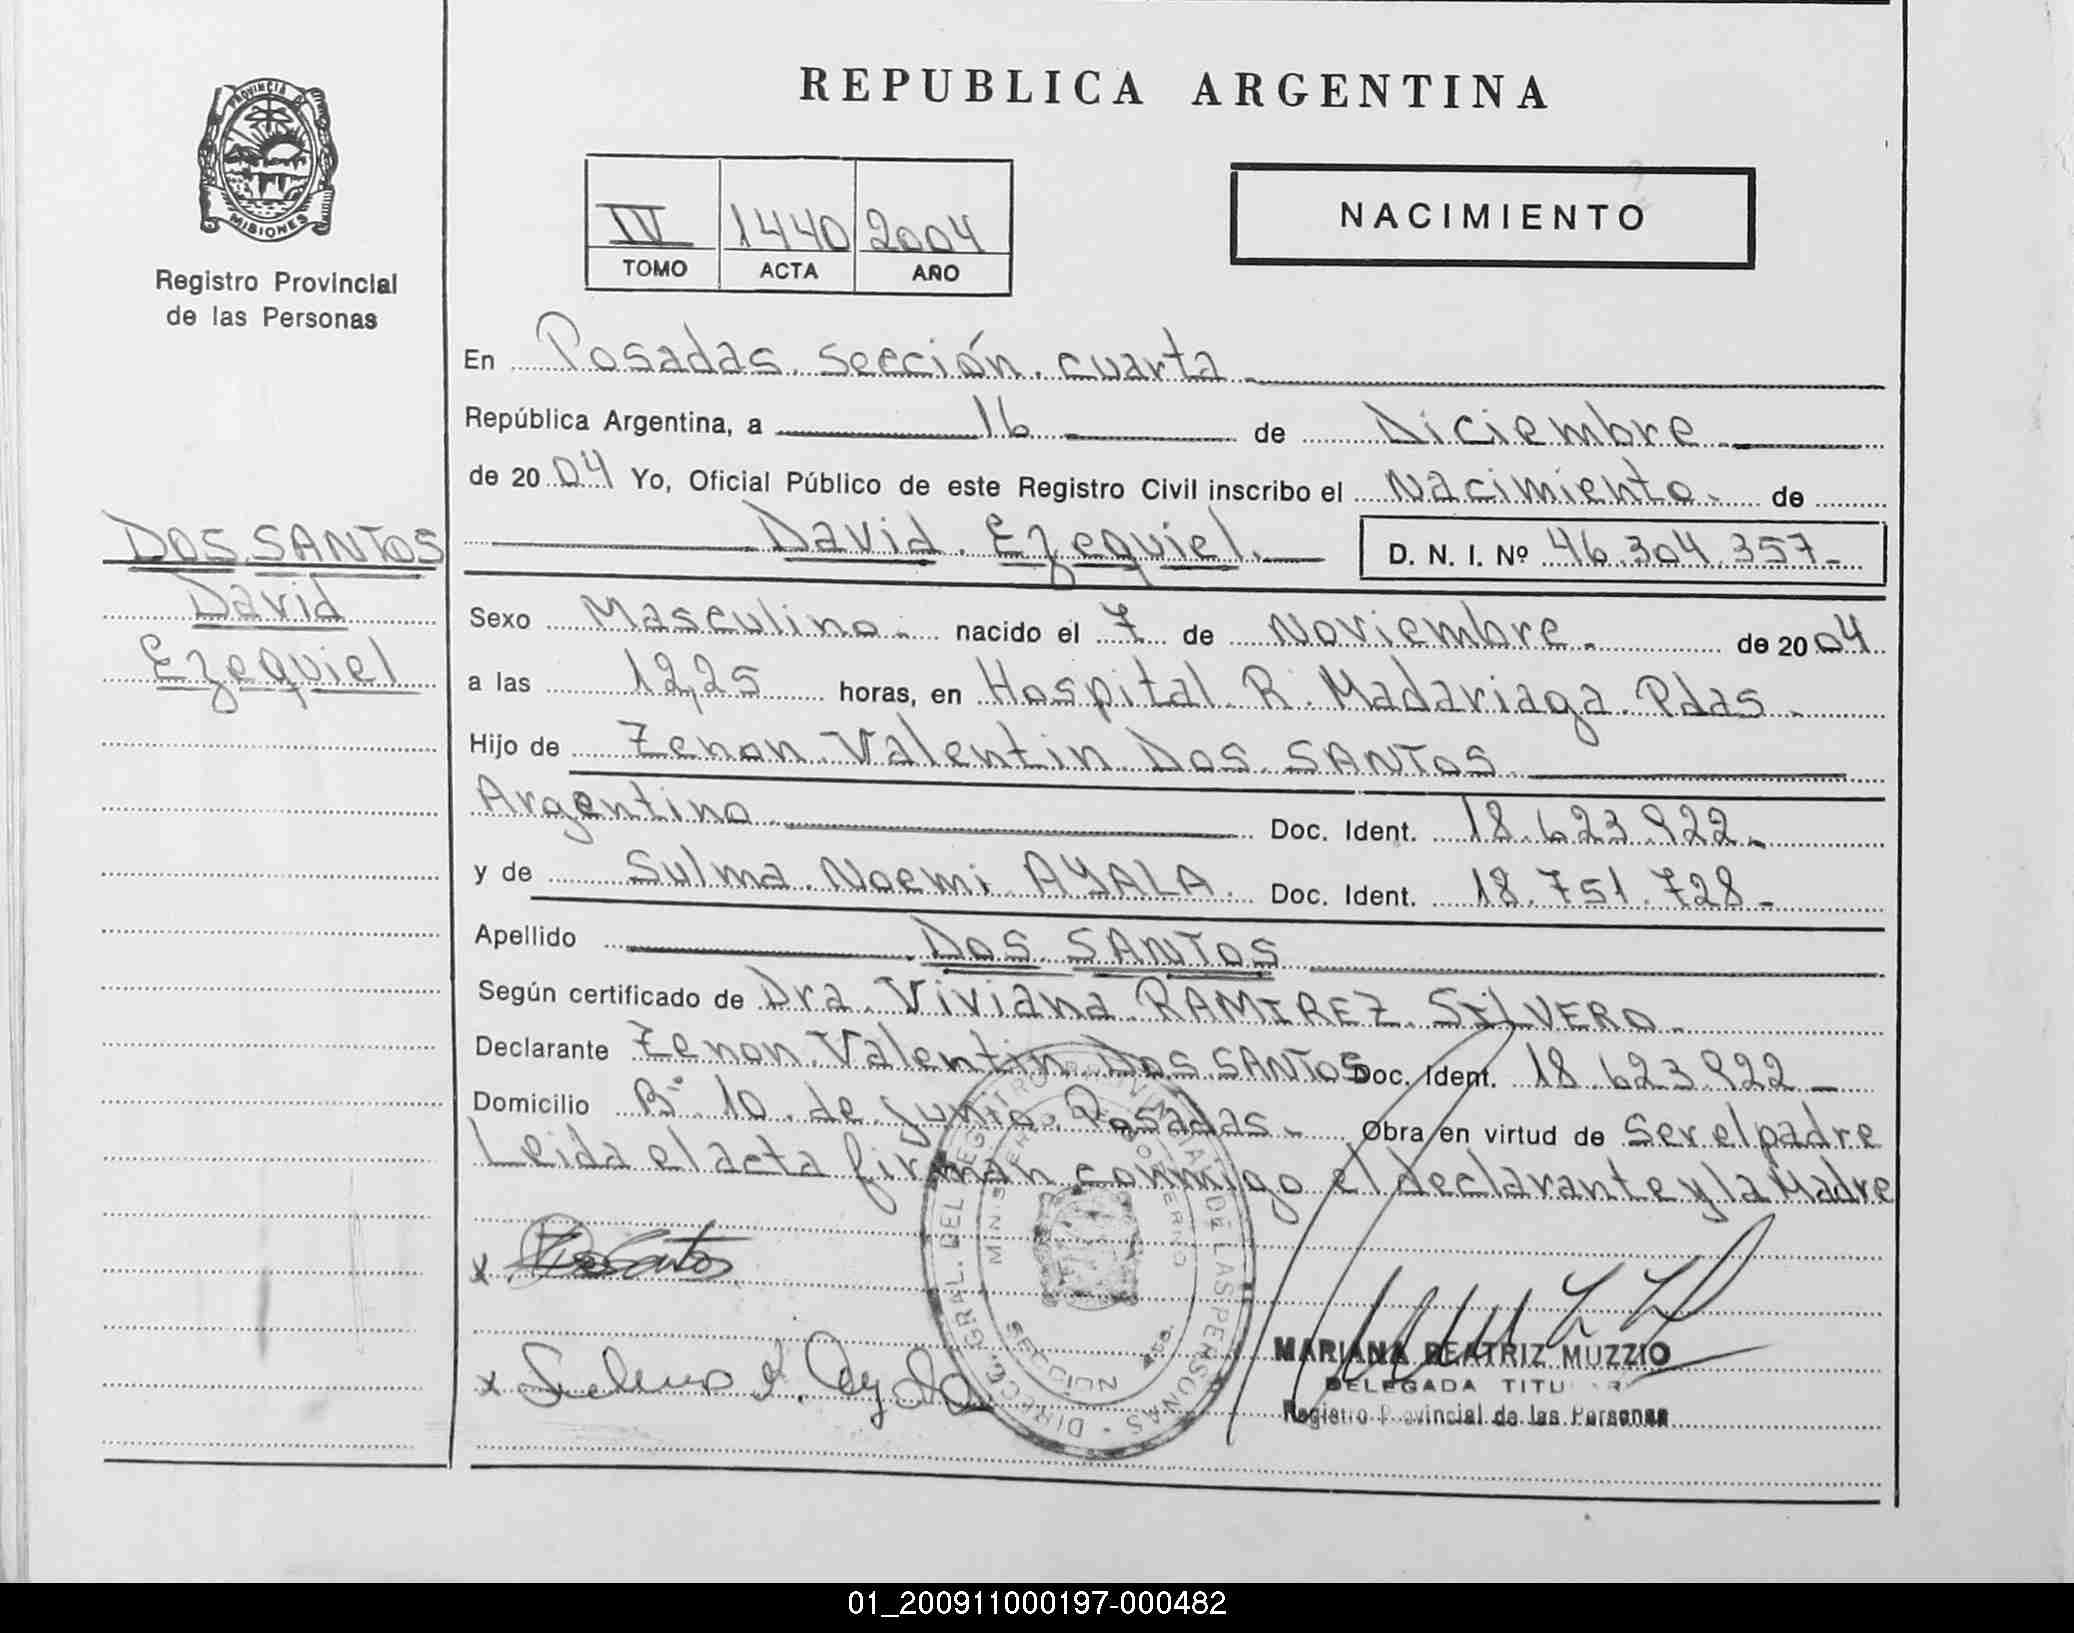 REPUBLICA ARGENTINA
PROVINCIA DE
MISIONES
Registro Provincial
de las Personas
IV 1440 2004
TOMO ACTA AÑO
NACIMIENTO
DOS SANTOS
David
Ezequiel
En Posadas sección cuarta
República Argentina, a 16 de Diciembre
de 2004 Yo, Oficial Público de este Registro Civil inscribo el Nacimiento de
David Ezequiel. D. N. I. Nº 46.304.357
Sexo Masculino nacido el 7 de Noviembre de 2004
a las 12,25 horas, en Hospital R. Madariaga. Pdas
Hijo de Zenon Valentin Dos SANTOS
Argentino Doc. Ident. 18.623.922
y de Sulma Noemi AYALA. Doc. Ident. 18.751.728
Apellido Dos SANTOS
Según certificado de Dra. Viviana RAMIREZ SILVERO
Declarante Zenon Valentin Dos SANTOS Doc. Ident. 18.623.922
Domicilio Bº 10 de junio Posadas Obra en virtud de Ser el padre
Leida el acta firman conmigo el declarante y la Madre
x
x Sulma N. Ayala
DIRECC. GRAL. DEL REGISTRO PROVINCIAL DE LAS PERSONAS
MINISTERIO DE GOBIERNO
SECCION 4ta.
MARIANA BEATRIZ MUZZIO
DELEGADA TITULAR
Registro Provincial de las Personas
01_200911000197-000482